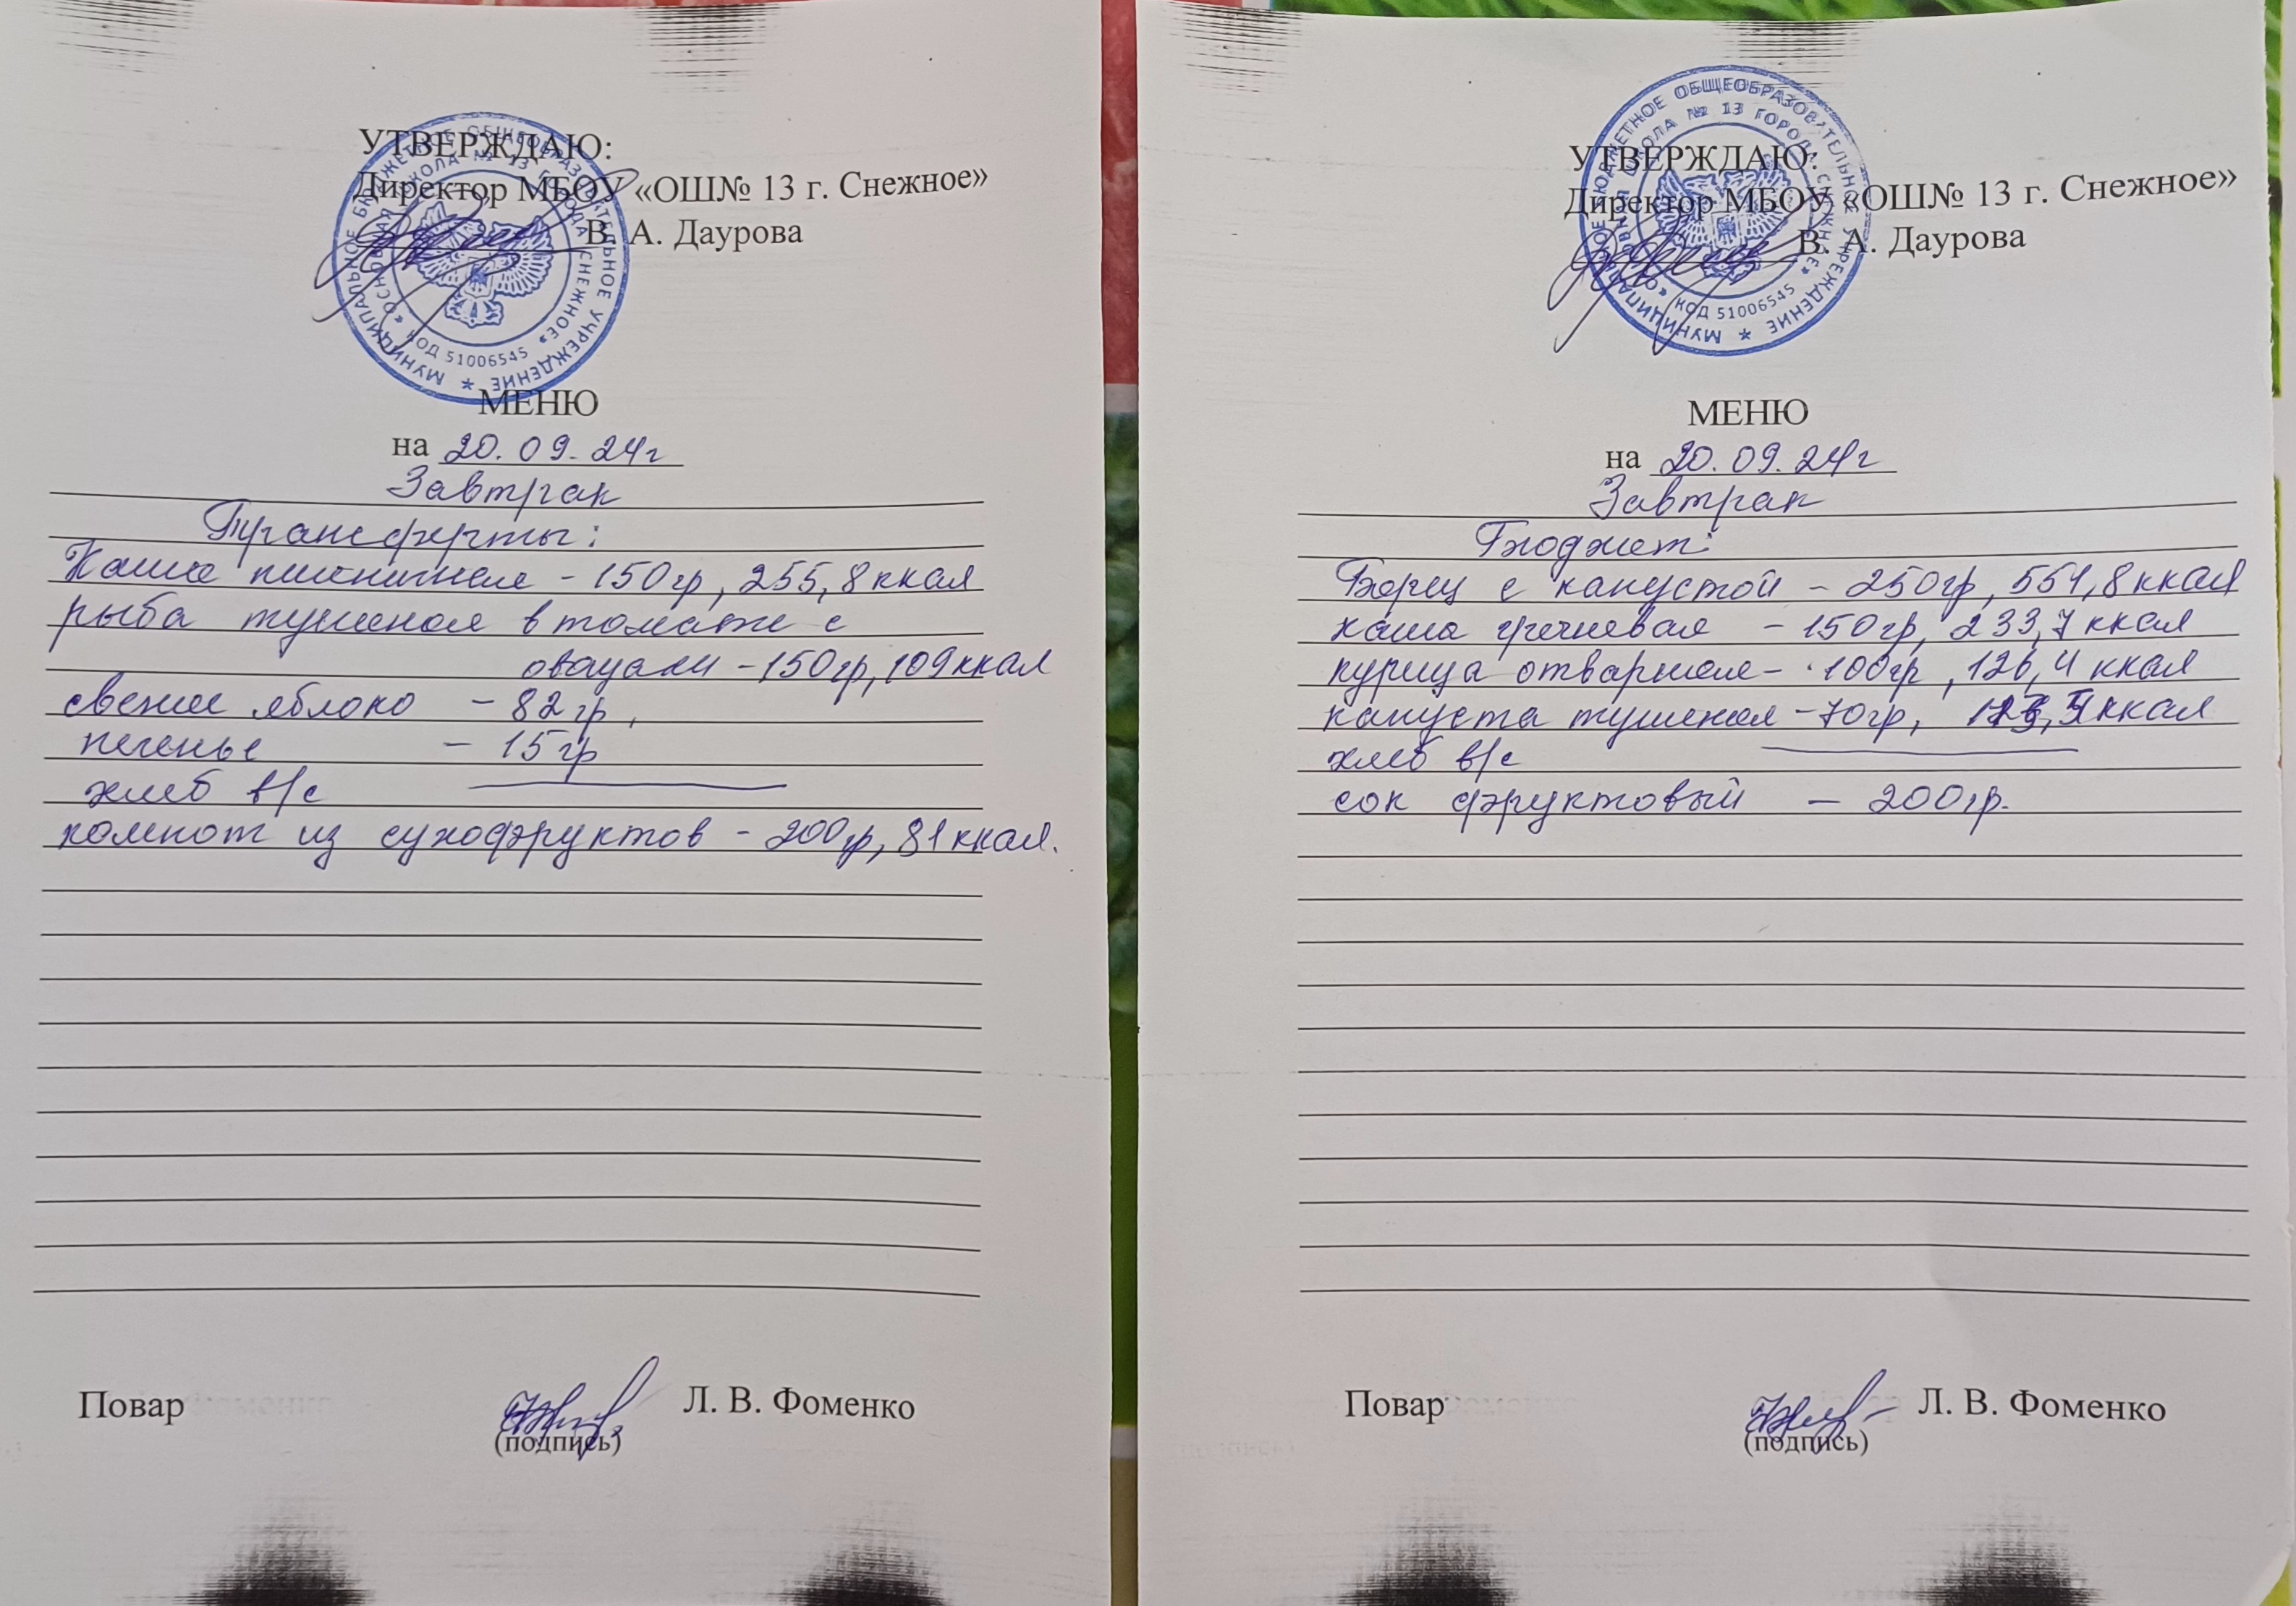 УТВЕРЖДАЮ:
Директор МБОУ «ОШ№ 13 г. Снежное»
В. А. Даурова
МУНИЦИПАЛЬНОЕ БЮДЖЕТНОЕ ОБЩЕОБРАЗОВАТЕЛЬНОЕ УЧРЕЖДЕНИЕ *
«ОСНОВНАЯ ШКОЛА № 13 ГОРОДА СНЕЖНОЕ»
КОД 51006545
МЕНЮ
на 20.09.24г
Завтрак
Трансферты:
Каша пшеничная - 150гр, 255,8 ккал
рыба тушеная в томате с
овощами - 150гр, 109 ккал
свежее яблоко - 82 гр,
печенье - 15 гр
хлеб в/с
компот из сухофруктов - 200гр, 81 ккал.
Повар
Л. В. Фоменко
(подпись)
УТВЕРЖДАЮ:
Директор МБОУ «ОШ№ 13 г. Снежное»
В. А. Даурова
МУНИЦИПАЛЬНОЕ БЮДЖЕТНОЕ ОБЩЕОБРАЗОВАТЕЛЬНОЕ УЧРЕЖДЕНИЕ *
«ОСНОВНАЯ ШКОЛА № 13 ГОРОДА СНЕЖНОЕ»
КОД 51006545
МЕНЮ
на 20.09.24г
Завтрак
Бюджет:
Борщ с капустой - 250гр, 551,8 ккал
каша гречневая - 150гр, 233,7 ккал
курица отварная - 100гр, 126,4 ккал
капуста тушеная - 70гр, ккал
хлеб в/с
сок фруктовый - 200гр.
Повар
Л. В. Фоменко
(подпись)